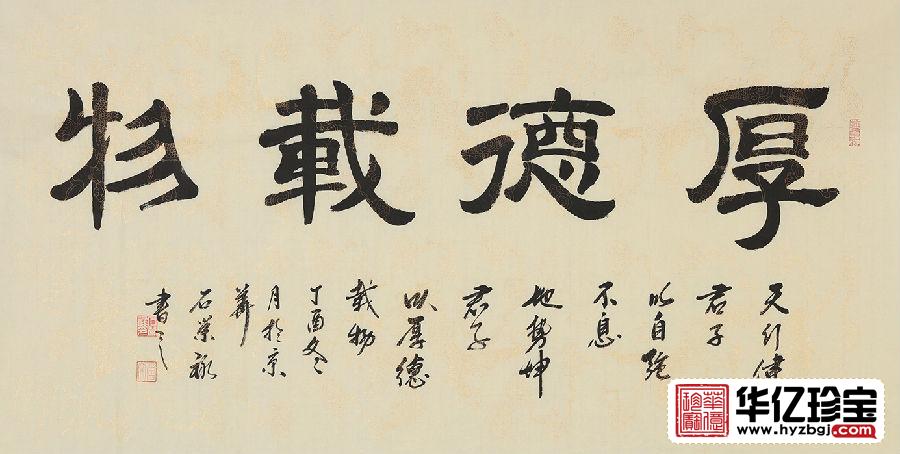 厚德載物
天行健
君子
以自强
不息
地势坤
君子
以厚德
載物
丁酉冬
月於京
華
石荣禄
書之
华亿珍宝
www.hyzbgj.com